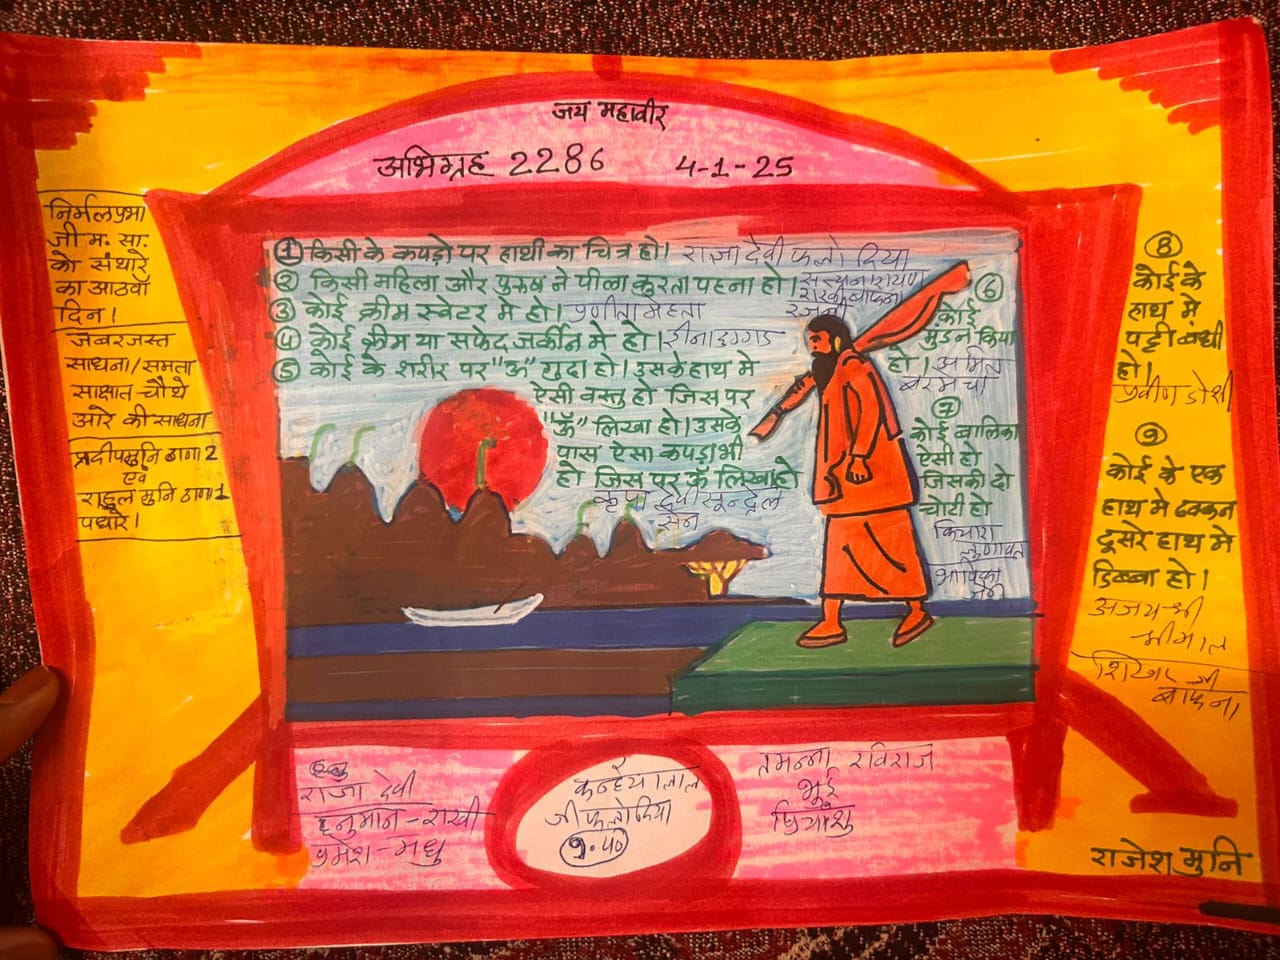 जय महावीर
अभिग्रह 2286 4-1-25
निर्मलप्रभा
जी म. सा.
के संथारे
का आठवाँ
दिन।
जबरजस्त
साधना/समता
साक्षात चौथे
आरे की साधना
प्रदीपमुनि ठाणा 2
एवं
राहुल मुनि ठाणा 1
पधारे।
① किसी के कपड़ो पर हाथी का चित्र हो। राजा देवी फलोदिया
② किसी महिला और पुरुष ने पीला कुरता पहना हो। सत्यनारायण
राखी बाफना
रजनी
③ कोई क्रीम स्वेटर मे हो। प्रणीता मेहता
④ कोई क्रीम या सफेद जर्कीन मे हो। रीना डागा
⑤ कोई के शरीर पर "ॐ" गुदा हो। उसके हाथ मे
ऐसी वस्तु हो जिस पर
"ॐ" लिखा हो। उसके
पास ऐसा कपड़ा भी
हो जिस पर ॐ लिखा हो
देवी
सेन
⑥
कोई
मुंडन किया
हो। अमित
बरमेचा
⑦
कोई बालिका
ऐसी हो
जिसकी दो
चोटी हो
कियारा
लुणावत
भाविका
⑧
कोई के
हाथ मे
पट्टी बंधी
हो।
प्रवीण डोशी
⑨
कोई के एक
हाथ मे ढक्कन
दूसरे हाथ मे
डिब्बा हो।
अजय श्री
श्रीमाल
जी
बाफना
राजा देवी
हनुमान - राखी
प्रमेश - मधु
कन्हैयालाल
जी फलोदिया
9.50
तमन्ना रविराज
भुई
प्रियांशु
राजेश मुनि